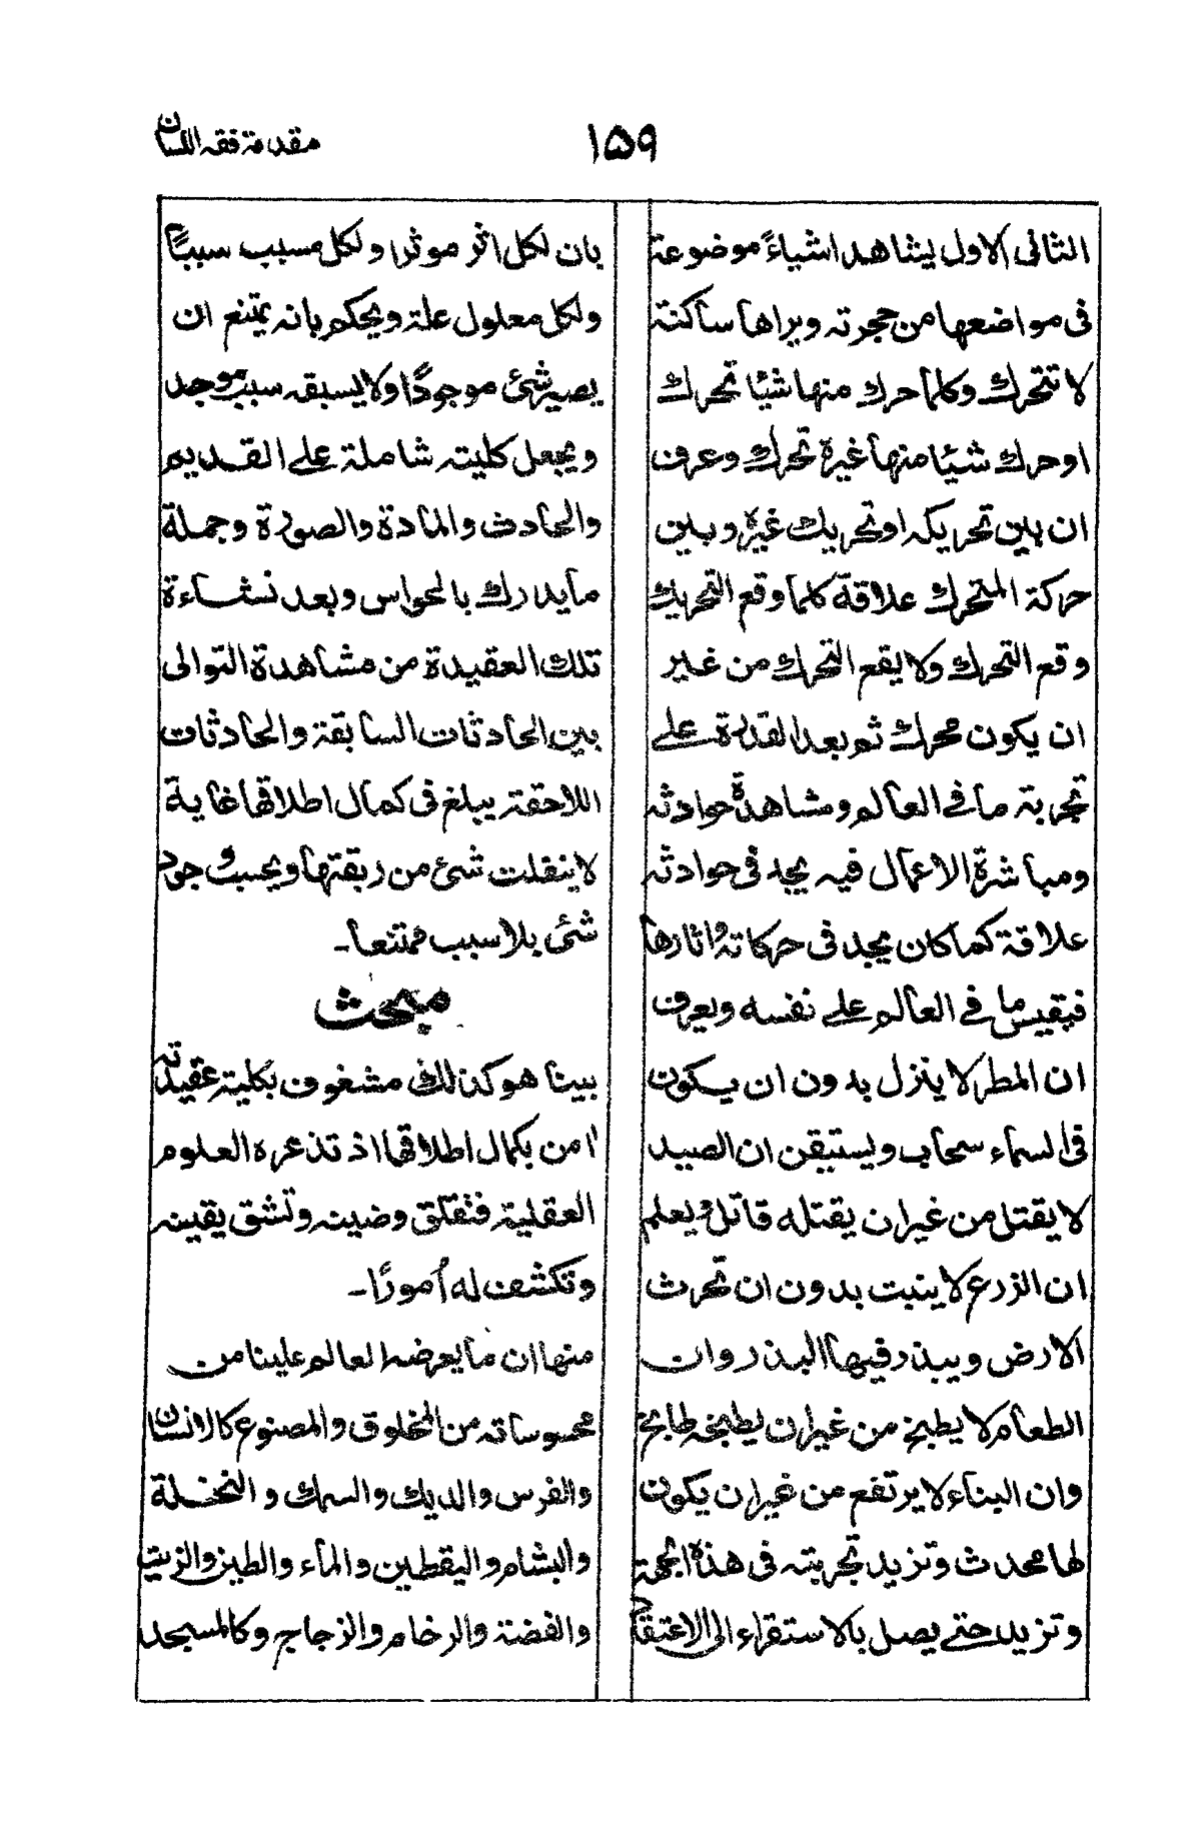 ١٥٩
مقدمة فقه اللسان
الثانى الاول يشاهد اشياءً موضوعة
فى مواضعها من حجرته ويراها ساكنة
لا تتحرك وكلما حرك منها شيئا تحرك
او حرك شيئا منها غيره تحرك وعرف
ان بين تحريكه او تحريك غيره وبين
حركة المتحرك علاقة كلما وقع التحريك
وقع التحرك ولا يقع التحرك من غير
ان يكون محرك ثم بعد القدرة على
تجربة ما فى العالم ومشاهدة حوادثه
ومباشرة الاعمال فيه يجد فى حوادثه
علاقة كما كان يجد فى حركاته واثارها
فيقيس ما فى العالم على نفسه ويعرف
ان المطر لا ينزل بدون ان يكون
فى السماء سحاب ويستيقن ان الصيد
لا يقتل من غير ان يقتله قاتل ويعلم
ان الزرع لا ينبت بدون ان تحرث
الارض ويبذر فيها البذر وان
الطعام لا يطبخ من غير ان يطبخه طابخ
وان البناء لا يرتفع من غير ان يكون
لها محدث وتزيد تجربته فى هذه الجهة
وتزيد حتى يصل بالاستقراء الى الاعتقاد
بان لكل اثر موثرا ولكل مسبب سببًا
ولكل معلول علة ويحكم بانه يمتنع ان
يصير شئ موجودًا ولا يسبقه سبب موجد
ويجعل كليته شاملة على القديم
والحادث والمادة والصورة وجملة
ما يدرك بالحواس وبعد نشاءة
تلك العقيدة من مشاهدة التوالى
بين الحادثات السابقة والحادثات
اللاحقة يبلغ فى كمال اطلاقها غاية
لا ينفلت شئ من ربقتها ويحسب وجود
شئ بلا سبب ممتنعا۔
مبحث
بينا هو كذلك مشغوف بكلية عقيدته
امن بكمال اطلاقها اذ تذعره العلوم
العقلية فتقلق وضينه وتشق يقينه
وتكشف له اُمورًا۔
منها ان ما يعرضه العالم علينا من
محسوساته من المخلوق والمصنوع كالانسان
والفرس والديك والسمك والنخلة
والبشام واليقطين والماء والطين والزيت
والفضة والرخام والزجاج وكالمسجد